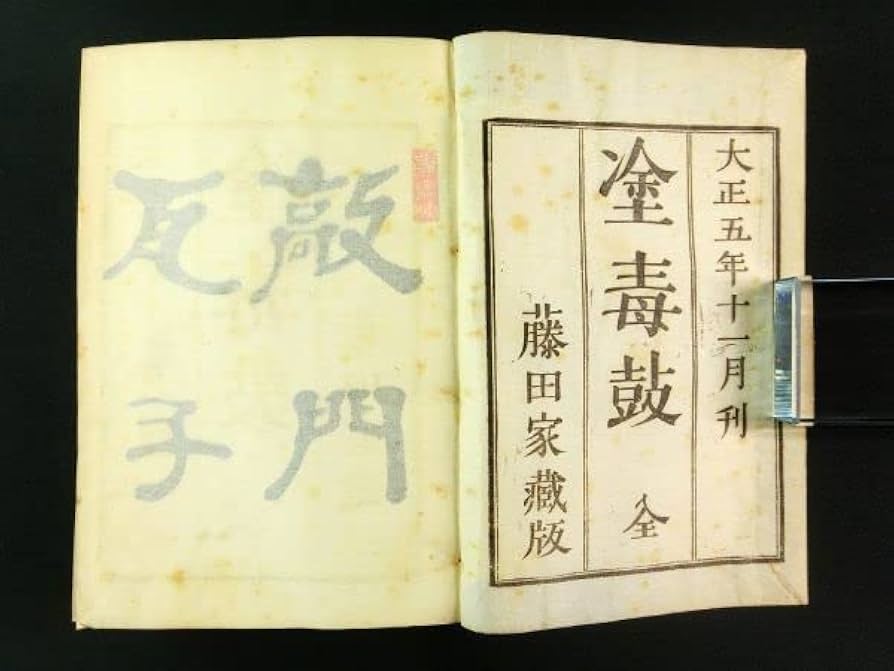 大正五年十一月刊
塗毒鼓 全
藤田家藏版
敲門
瓦子